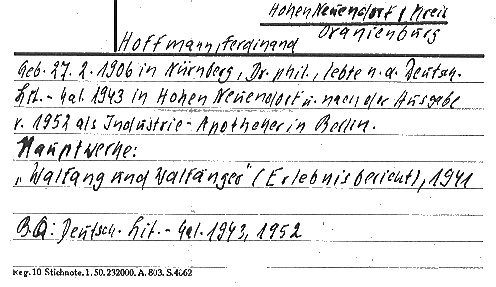 Hohen Neuendorf, Kreis
Oranienburg
Hoffmann, Ferdinand
Geb. 27. 2. 1906 in Nürnberg, Dr. phil., lebte n. d. Deutsch.
Lit.-Kal. 1943 in Hohen Neuendorf u. nach der Ausgabe
v. 1952 als Industrie-Apotheker in Berlin.
Hauptwerke:
„Walfang und Walfänger" (Erlebnisbericht), 1941
B.Q: Deutsch. Lit.-Kal. 1943, 1952
Reg. 10 Stichnote. 1. 50. 232000. A. 803. S. 4662